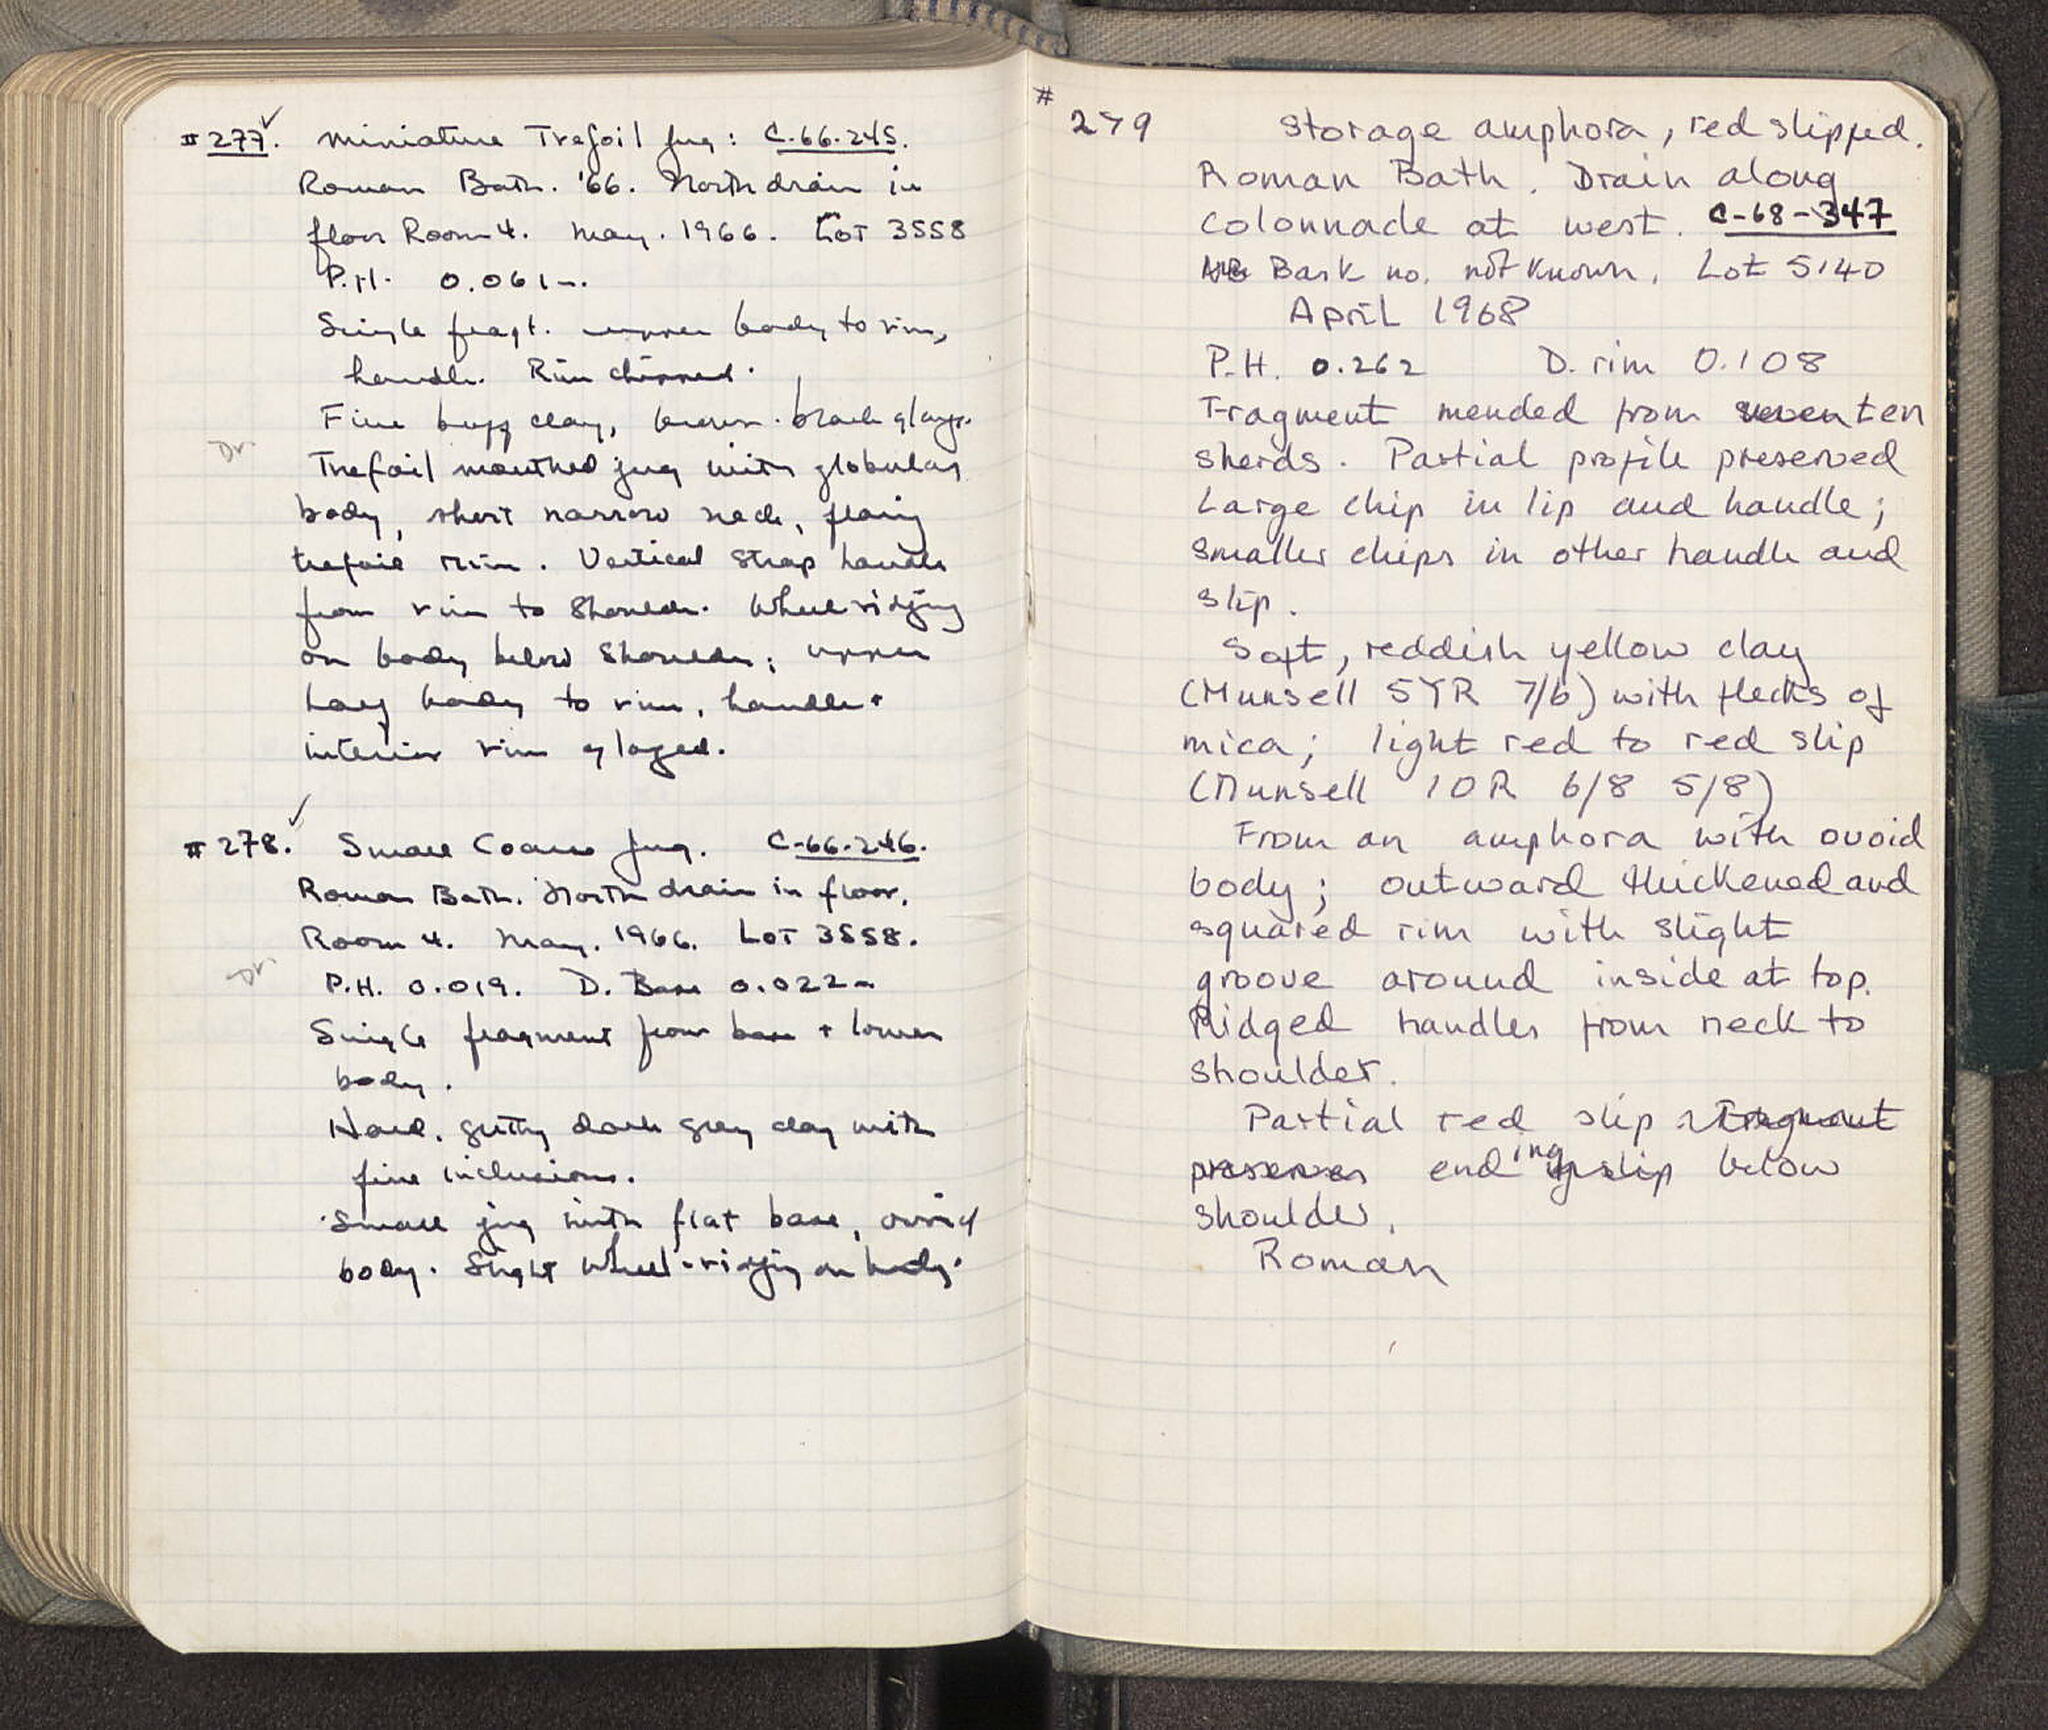 # 277. Miniature Trefoil Jug: C-66-245.
Roman Bath. '66. North drain in
floor Room 4. May. 1966. Lot 3558
P.H. 0.061-.
Single fragt. upper body to rim,
handle. Rim chipped.
Fine buff clay, brown-black glaze.
Dr.
Trefoil mouthed jug with globular
body, short narrow neck, flaring
trefoil rim. Vertical strap handle
from rim to shoulder. Wheel ridging
on body below shoulder; upper
half body to rim, handle +
interior rim glazed.
# 278. Small Coarse Jug. C-66-246.
Roman Bath. North drain in floor,
Room 4. May. 1966. Lot 3558.
Dr.
P.H. 0.019. D. Base 0.022-
Single fragment from base + lower
body.
Hard, gritty dark grey clay with
fine inclusions.
Small jug with flat base, ovoid
body. Slight wheel-ridging on body.
# 279 Storage amphora, red slipped.
Roman Bath. Drain along
Colonnade at west. C-68-347
NB Bask no. not known. Lot 5140
April 1968
P.H. 0.262 D. rim 0.108
Fragment mended from seven ten
sherds. Partial profile preserved
Large chip in lip and handle;
smaller chips in other handle and
slip.
Soft, reddish yellow clay
(Munsell 5YR 7/6) with flecks of
mica; light red to red slip
(Munsell 10R 6/8 5/8)
From an amphora with ovoid
body; outward thickened and
squared rim with slight
groove around inside at top.
Ridged handles from neck to
shoulder.
Partial red slip fragment
preserves ending slip below
shoulder.
Roman